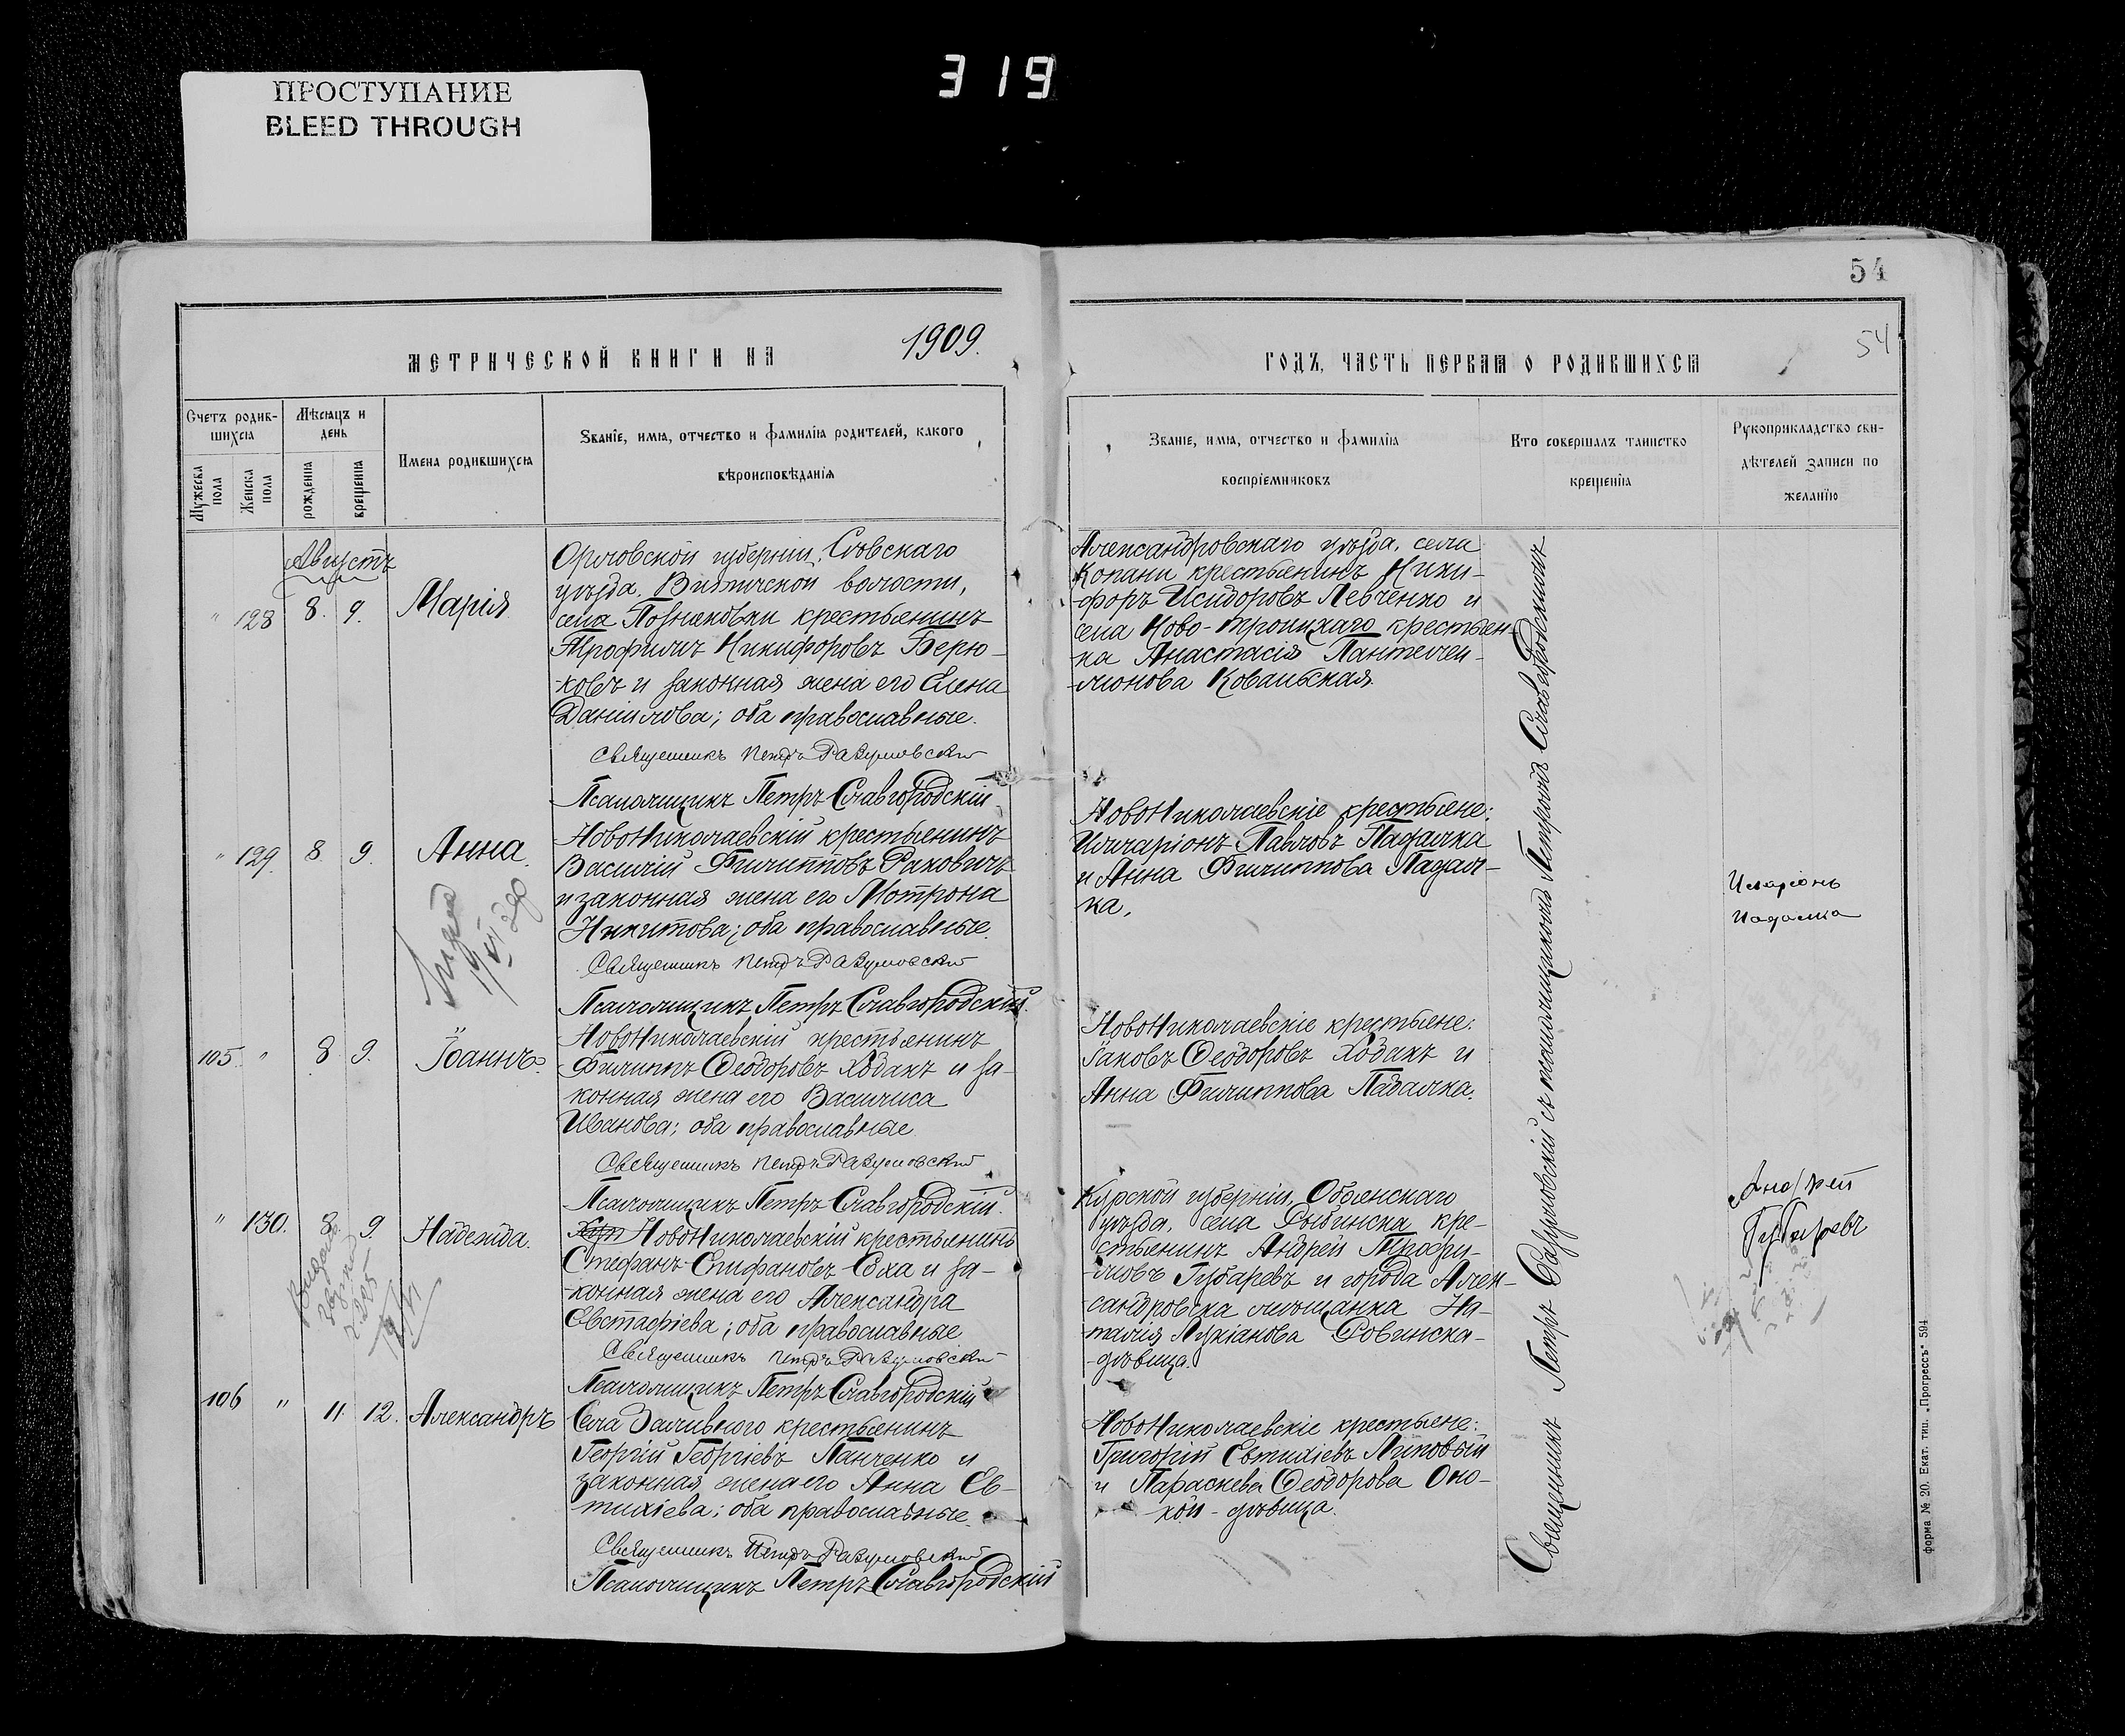 ПРОСТУПАНИЕ
BLEED THROUGH
319
54
54
МЕТРИЧЕСКОЙ КНИГИ НА 1909.
ГОДЪ, ЧАСТЬ ПЕРВАЯ О РОДИВШИХСЯ
Счетъ родив-
шихся
Мужеска пола
Женска пола
Мѣсяцъ и
день
рожденія
крещенія
Имена родившихся
Званіе, имя, отчество и фамилія родителей, какого
вѣроисповѣданія
Званіе, имя, отчество и фамилія
воспріемниковъ
Кто совершалъ таинство
крещенія
Рукоприкладство сви-
дѣтелей записи по
желанію
Августъ
" 128 8. 9. Марія
Орловской губерніи, Сѣвскаго
уѣзда, волости,
села крестьянинъ
Трофимъ Никифоровъ Берю-
ковъ и законная жена его Елена
Даніилова; оба православные.
Священникъ Петръ Разумовскій
Псаломщикъ Петръ Славгородскій
Александровскаго уѣзда, села
Копани крестьянинъ Ники-
форъ Исидоровъ Левченко и
села Ново-Троицкаго крестьян-
ка Анастасія Пантелеи-
монова Ковальская
" 129. 8. 9. Анна.
НовоНиколаевскій крестьянинъ
Василій Филипповъ Раковичъ
и законная жена его Мотрона
Никитова; оба православные.
Священникъ Петръ Разумовскій
Псаломщикъ Петръ Славгородскій.
НовоНиколаевскіе крестьяне:
Илларіонъ Павловъ Падалка
и Анна Филиппова Падал-
ка.
Иларіонъ
Падалка
105 " 8 9. Іоаннъ.
НовоНиколаевскій крестьянинъ
Филиппъ Ѳеодоровъ Ходакъ и за-
конная жена его Василиса
Иванова; оба православные
Священникъ Петръ Разумовскій
Псаломщикъ Петръ Славгородскій.
НовоНиколаевскіе крестьяне:
Іаковъ Ѳеодоровъ Ходакъ и
Анна Филиппова Падалка.
" 130. 8. 9. Надежда.
НовоНиколаевскій крестьянинъ
Стефанъ Епифановъ Саха и за-
конная жена его Александра
Евстафіева; оба православные
Священникъ Петръ Разумовскій
Псаломщикъ Петръ Славгородскій
Курской губерніи, Обоянскаго
уѣзда, села Рыбинска, кре-
стьянинъ Андрей Трофи-
мовъ Губаревъ и города Алек-
сандровска мѣщанка На-
талія Лукіанова Ровинска-
-дѣвица.
Андрей
Губаревъ
106 " 11. 12. Александръ
Села Заливного крестьянинъ
Георгій Георгіевъ Панченко и
законная жена его Анна Ев-
тихіева; оба православные.
Священникъ Петръ Разумовскій
Псаломщикъ Петръ Славгородскій
НовоНиколаевскіе крестьяне:
Григорій Евтихіевъ Липовый
и Параскева Ѳеодорова Оно-
хой - дѣвица.
Священникъ Петръ Разумовскій съ псаломщикомъ Петромъ Славгородскимъ
форма № 20. Екат. тип. „Прогрессъ" 594